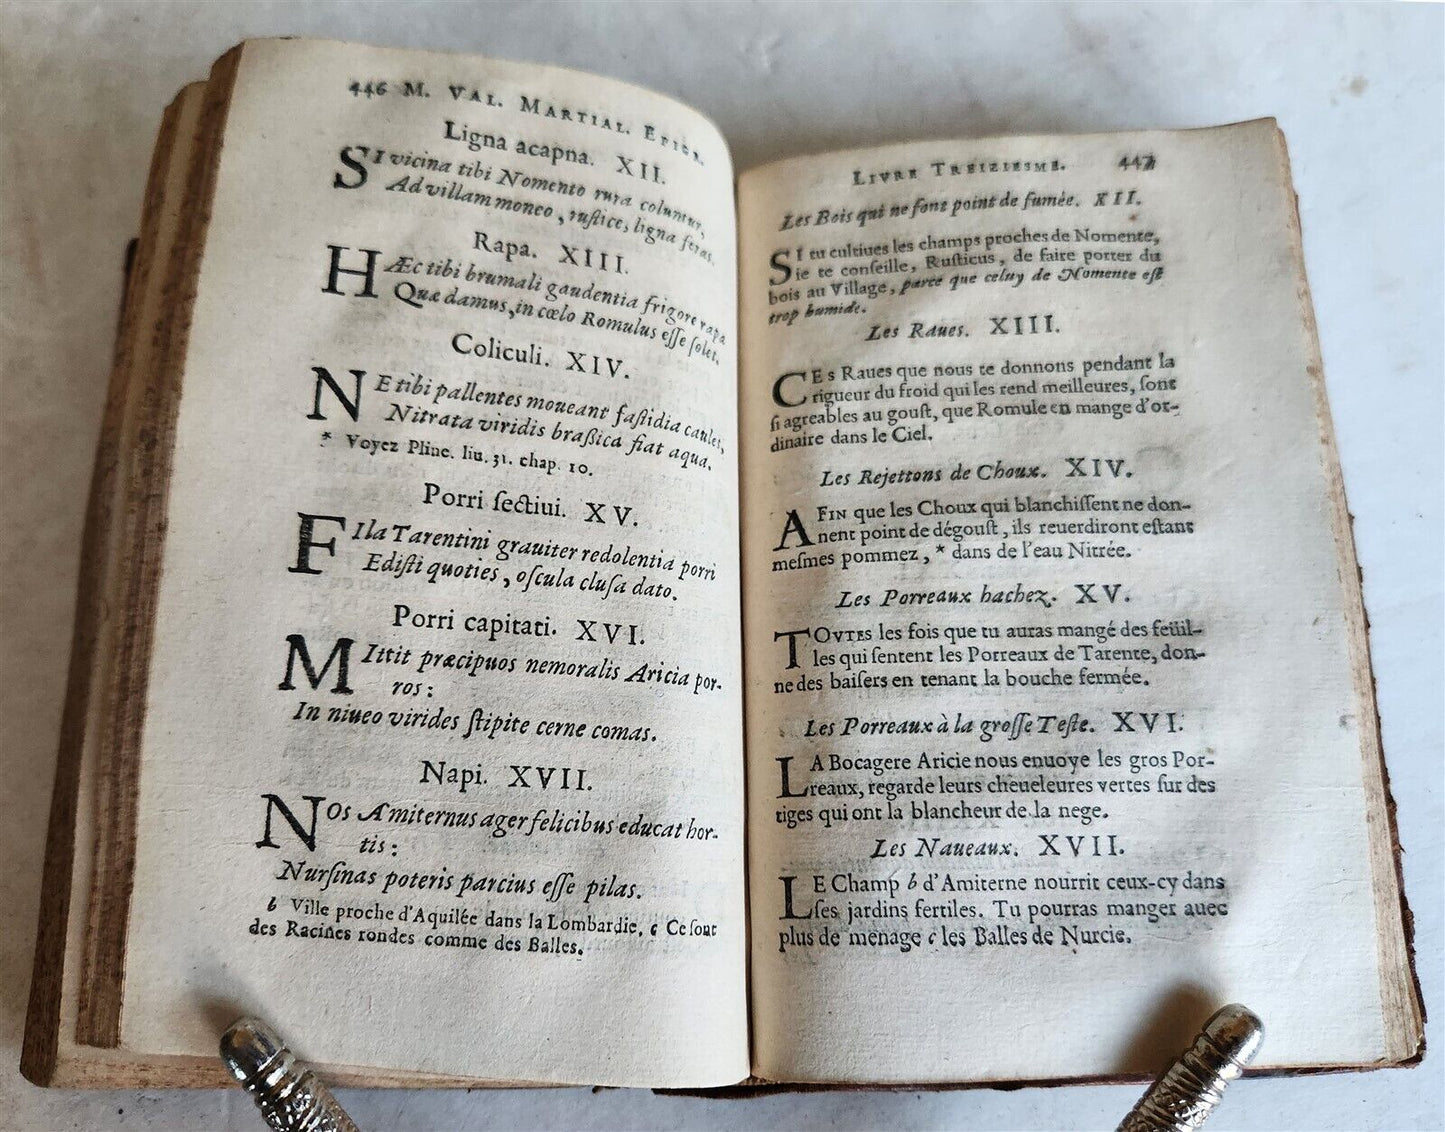 446 M. VAL. MARTIAL. EPIGR.
Ligna acapna. XII.
SI vicina tibi Nomento rura coluntur,
Ad villam moneo, rustice, ligna feras.
Rapa. XIII.
HÆc tibi brumali gaudentia frigore rapa
Quæ damus, in cœlo Romulus esse solet.
Coliculi. XIV.
NE tibi pallentes moueant fastidia caules,
Nitrata viridis brassica fiat aqua.
* Voyez Pline. liu. 31. chap. 10.
Porri sectiui. XV.
FIla Tarentini grauiter redolentia porri
Edisti quoties, oscula clusa dato.
Porri capitati. XVI.
MIttit præcipuos nemoralis Aricia por-
ros:
In niueo virides stipite cerne comas.
Napi. XVII.
NOs Amiternus ager felicibus educat hor-
tis:
Nursinas poteris parcius esse pilas.
b Ville proche d'Aquilée dans la Lombardie, c Ce sont
des Racines rondes comme des Balles.
LIVRE TREIZIESME. 447
Les Bois qui ne font point de fumée. XII.
SI tu cultiues les champs proches de Nomente,
ie te conseille, Rusticus, de faire porter du
bois au Village, parce que celuy de Nomente est
trop humide.
Les Raues. XIII.
CEs Raues que nous te donnons pendant la
rigueur du froid qui les rend meilleures, sont
si agreables au goust, que Romule en mange d'or-
dinaire dans le Ciel.
Les Rejettons de Choux. XIV.
AFIN que les Choux qui blanchissent ne don-
nent point de dégoust, ils reuerdiront estant
mesmes pommez, * dans de l'eau Nitrée.
Les Porreaux hachez. XV.
TOVTES les fois que tu auras mangé des feüil-
les qui sentent les Porreaux de Tarente, don-
ne des baisers en tenant la bouche fermée.
Les Porreaux à la grosse Teste. XVI.
LA Bocagere Aricie nous enuoye les gros Por-
reaux, regarde leurs cheueleures vertes sur des
tiges qui ont la blancheur de la nege.
Les Naueaux. XVII.
LE Champ b d'Amiterne nourrit ceux-cy dans
ses jardins fertiles. Tu pourras manger auec
plus de menage c les Balles de Nurcie.